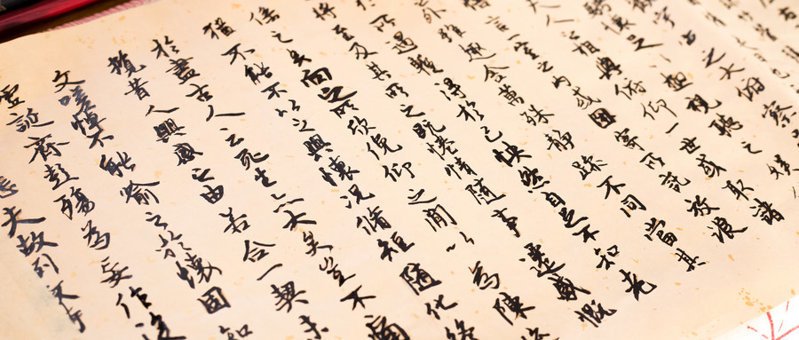 大俯察
視聽之娛
大人之相與俯仰一世或取諸
言一室之內或因寄所託放浪
雖趣舍萬殊靜躁不同當其
所遇暫得於己快然自足不知老
將至及其所之既惓情隨事遷感慨
係之矣向之所欣俛仰之閒以為陳
猶不能不以之興懷況脩短隨化終
於盡古人云死生亦大矣豈不痛
攬昔人興感之由若合一契未
文嗟悼不能喻之於懷固知
虛誕齊彭殤為妄作後
夫故列